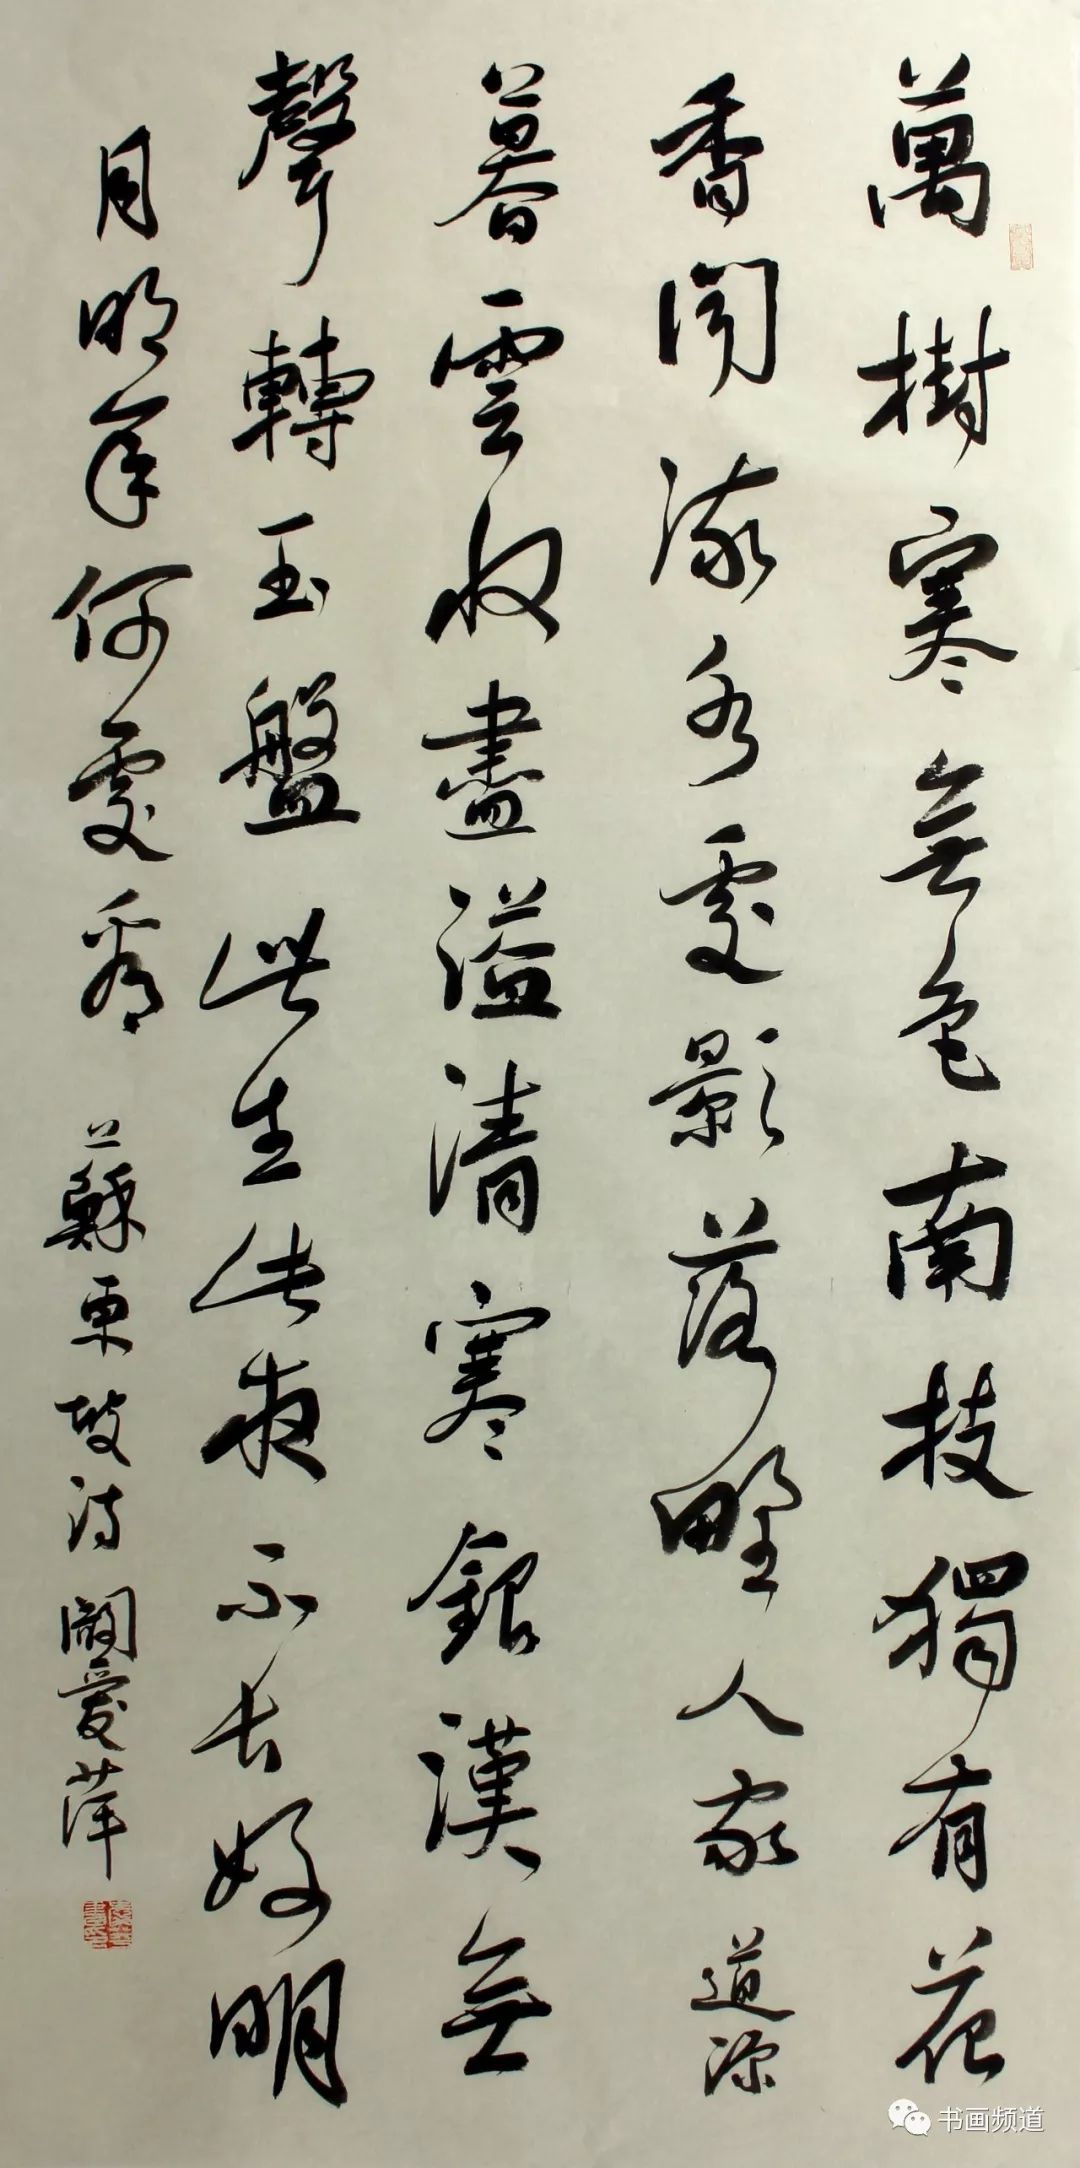 萬樹寒無色南枝獨有花
香聞流水處影落野人家 道源
暮雲收盡溢清寒銀漢無
聲轉玉盤此生此夜不長好明
月明年何處看 蘇東坡詩 闞愛萍
书画频道